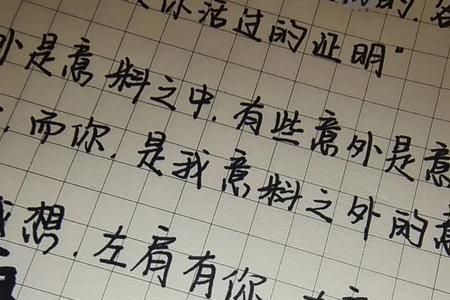 你活过的证明"
外是意料之中.有些意外是意
.而你.是我意料之外的意
我想.左肩有你